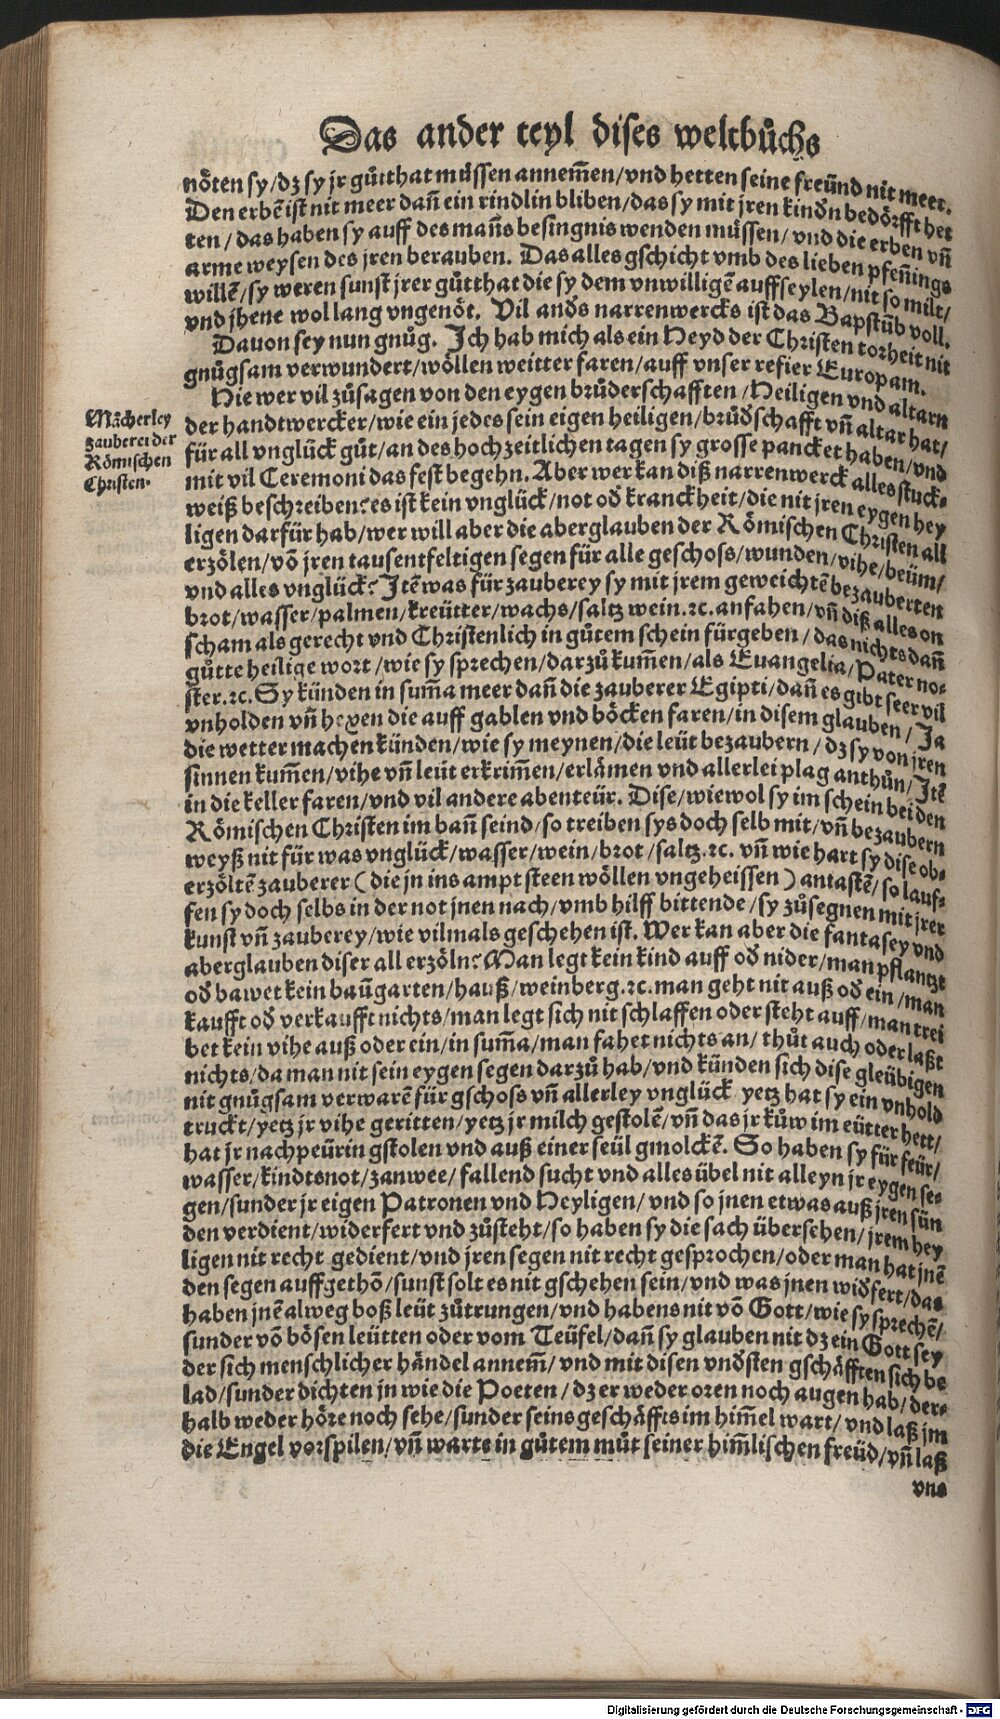 Das ander teyl dises weltbůchs
nöten sy/dz sy jr gůtthat müssen annem̃en/vnd hetten seine freünd nit meer.
Den erbẽ ist nit meer dañ ein rindlin bliben/das sy mit jren kindn̄ bedörfft het
ten/das haben sy auff des mañs besingnis wenden müssen/vnd die erben vñ
arme weysen des jren berauben. Das alles gschicht vmb des lieben pfeñings
willẽ/sy weren sunst jrer gůtthat die sy dem vnwilligẽ auffseylen/nit so milt/
vnd jhene wol lang vngenöt. Vil and̓s narrenwercks ist das Bapstũb voll.
Dauon sey nun gnůg. Ich hab mich als ein Heyd der Christen torheit nit
gnůgsam verwundert/wöllen weitter faren/auff vnser refier Europam.
Hie wer vil zůsagen von den eygen brůderschafften/Heiligen vnd altarn
Mãcherley
zauberei der
Römischen
Christen.
der handtwercker/wie ein jedes sein eigen heiligen/brůd̓schafft vñ altar hat/
für all vnglück gůt/an des hochzeitlichen tagen sy grosse pancket haben/vnd
mit vil Ceremoni das fest begehn. Aber wer kan diß narrenwerck alles stuck⸗
weiß beschreiben? es ist kein vnglück/not od̓ kranckheit/die nit jren eygen hey
ligen darfür hab/wer will aber die aberglauben der Römischen Christen all
erzölen/võ jren tausentfeltigen segen für alle geschoss/wunden/vihe/beüm/
vnd alles vnglück? Itẽ was für zauberey sy mit jrem geweichtẽ bezauberten
brot/wasser/palmen/kreütter/wachs/saltz wein.ꝛc.anfahen/vñ diß alles on
scham als gerecht vnd Christenlich in gůtem schein fürgeben/das nichts dañ
gůtte heilige wort/wie sy sprechen/darzů kum̃en/als Euangelia/Pater no⸗
ster.ꝛc. Sy künden in sum̃a meer dañ die zauberer Egipti/dañ es gibt seer vil
vnholden vñ hexen die auff gablen vnd böcken faren/in disem glauben/Ja
die wetter machen künden/wie sy meynen/die leüt bezaubern/dz sy von jren
sinnen kum̃en/vihe vñ leüt erkrim̃en/erlämen vnd allerlei plag anthůn/Itẽ
in die keller faren/vnd vil andere abenteür. Dise/wiewol sy im schein bei den
Römischen Christen im bañ seind/so treiben sys doch selb mit/vñ bezaubern
weyß nit für was vnglück/wasser/wein/brot/saltz.ꝛc. vñ wie hart sy dise ob⸗
erzöltẽ zauberer (die jn ins ampt steen wöllen vngeheissen) antastẽ/so lauf⸗
fen sy doch selbs in der not jnen nach/vmb hilff bittende/sy zůsegnen mit jrer
kunst vñ zauberey/wie vilmals geschehen ist. Wer kan aber die fantasey vnd
aberglauben diser all erzöln? Man legt kein kind auff od̓ nider/man pflantzt
od̓ bawet kein baũgarten/hauß/weinberg.ꝛc.man geht nit auß od̓ ein/man
kaufft od̓ verkaufft nichts/man legt sich nit schlaffen oder steht auff/man trei
bet kein vihe auß oder ein/in sum̃a/man fahet nichts an/thůt auch oder laßt
nichts/da man nit sein eygen segen darzů hab/vnd künden sich dise gleübigen
nit gnůgsam verwarẽ für gschoss vñ allerley vnglück yetz hat sy ein vnhold
truckt/yetz jr vihe geritten/yetz jr milch gestolẽ/vñ das jr kůw im eütter hett/
hat jr nachpeürin gstolen vnd auß einer seül gmolckẽ. So haben sy für feür/
wasser/kindtsnot/zanwee/fallend sucht vnd alles übel nit alleyn jr eygen se⸗
gen/sunder jr eigen Patronen vnd Heyligen/vnd so jnen etwas auß jren sün
den verdient/widerfert vnd zůsteht/so haben sy die sach übersehen/jrem hey
ligen nit recht gedient/vnd jren segen nit recht gesprochen/oder man hat jnẽ
den segen auffgethõ/sunst solt es nit gschehen sein/vnd was jnen wid̓fert/das
haben jnẽ alweg boß leüt zůtrungen/vnd habens nit võ Gott/wie sy sprechẽ/
sunder võ bösen leütten oder vom Teüfel/dañ sy glauben nit dz ein Gott sey
der sich menschlicher händel annem̃/vnd mit disen vnd̓sten gschäfften sich be
lad/sunder dichten jn wie die Poeten/dz er weder oren noch augen hab/der⸗
halb weder höre noch sehe/sunder seins geschäffts im him̃el wart/vnd laß jm
die Engel vorspilen/vñ warte in gůtem můt seiner him̃lischen freüd/vñ laß
vns
Digitalisierung gefördert durch die Deutsche Forschungsgemeinschaft - DFG